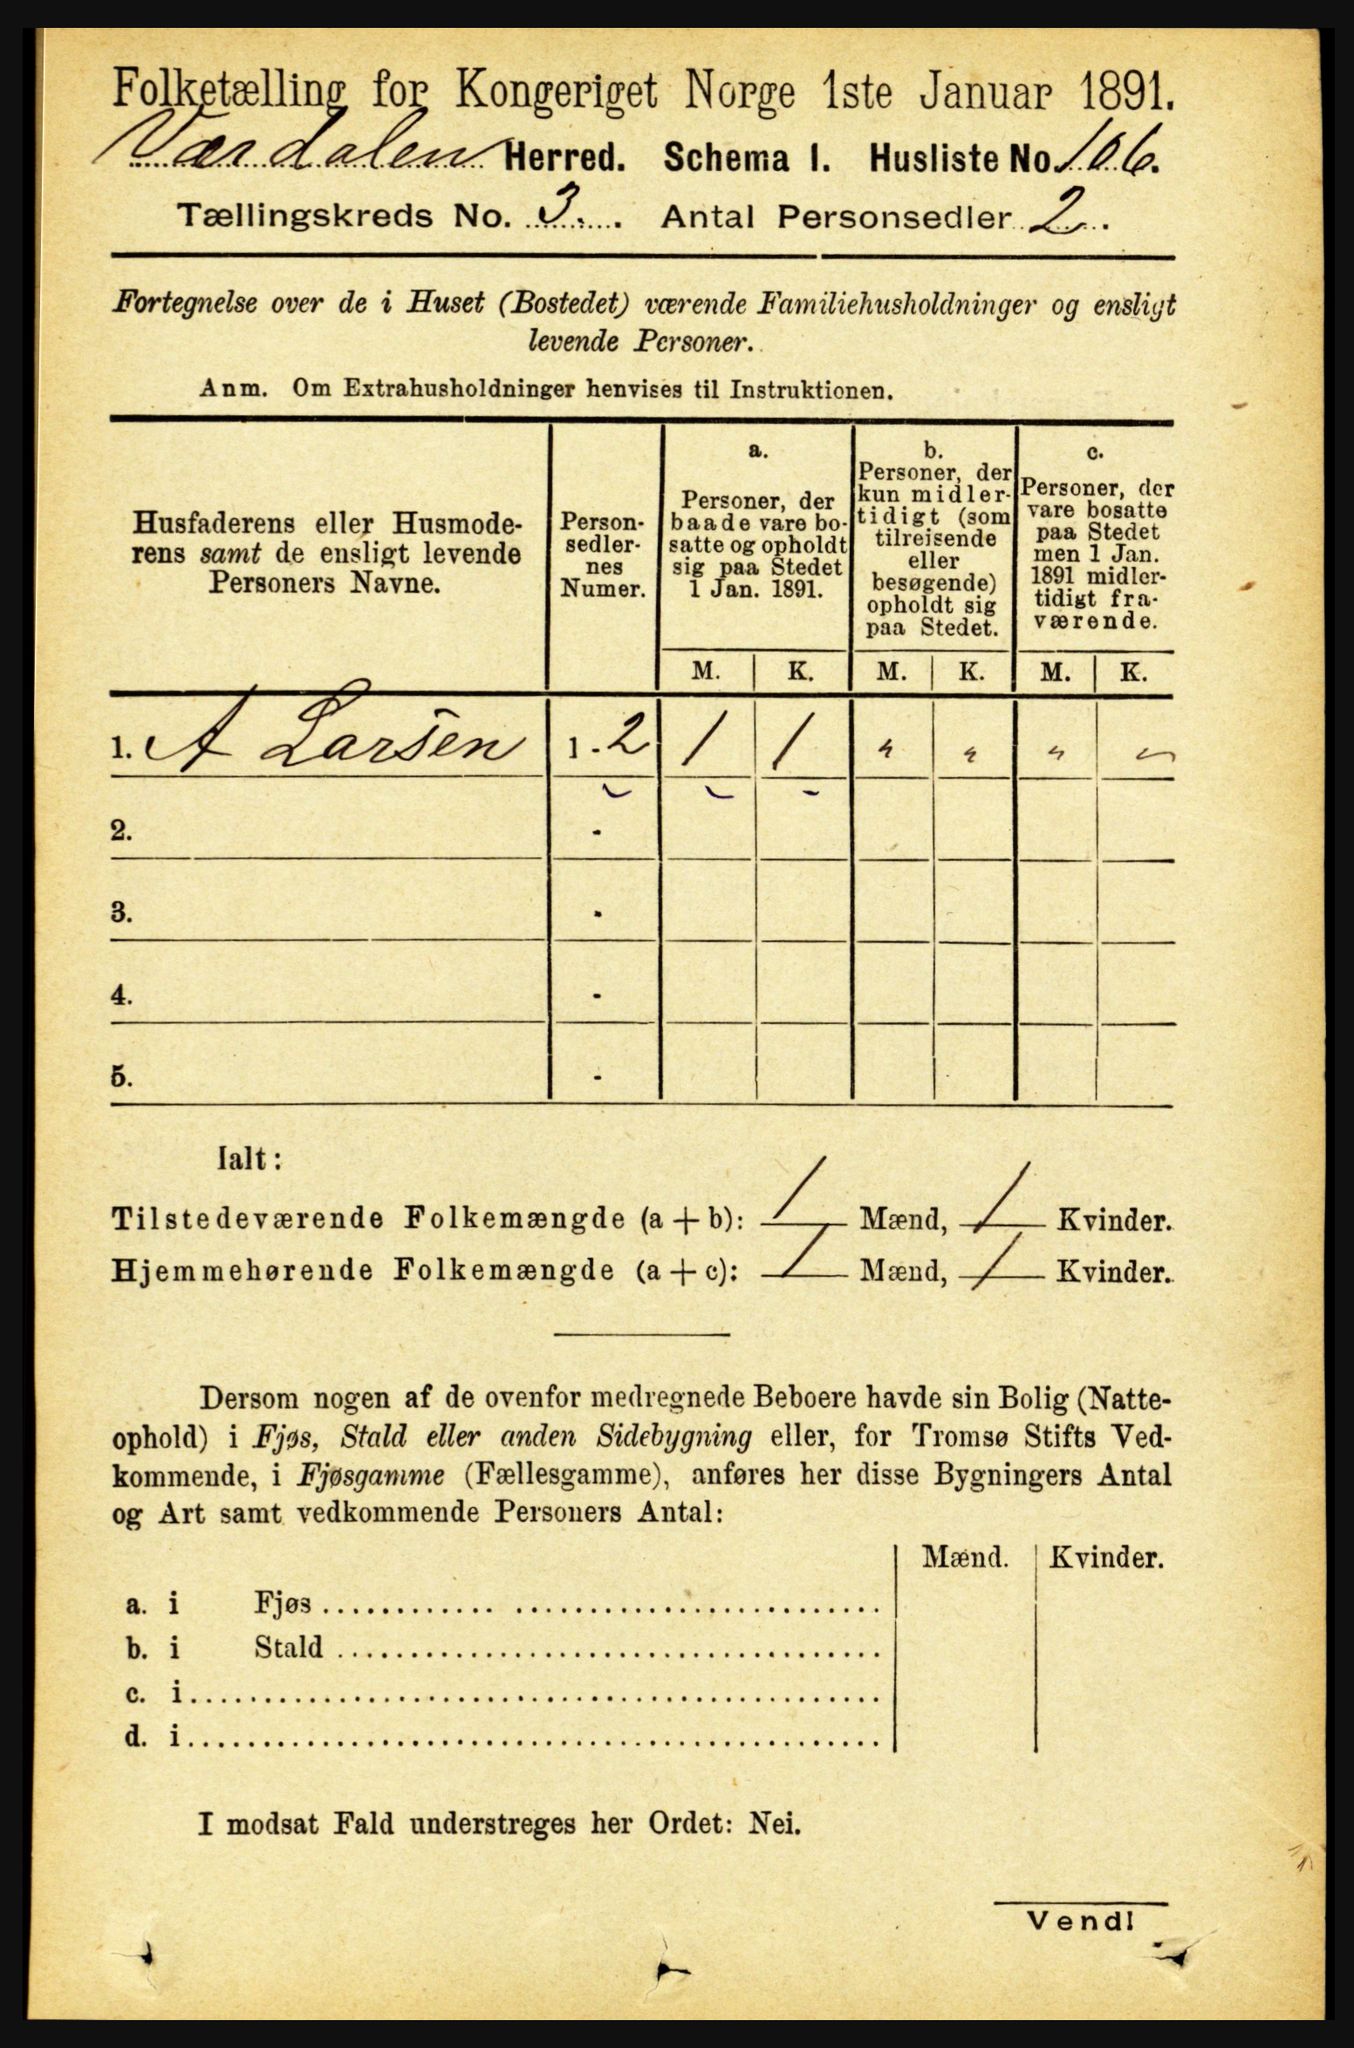 Folketælling for Kongeriget Norge 1ste Januar 1891.
Værdalen Herred. Schema 1. Husliste No 106.
Tællingskreds No. 3. Antal Personsedler 2.
Fortegnelse over de i Huset (Bostedet) værende Familiehusholdninger og ensligt
levende Personer.
Anm. Om Extrahusholdninger henvises til Instruktionen.
Husfaderens eller Husmode-
rens samt de ensligt levende
Personers Navne.
Person-
sedler-
nes
Numer.
a.
Personer, der
baade vare bo-
satte og opholdt
sig paa Stedet
1 Jan. 1891.
b.
Personer, der
kun midler-
tidigt (som
tilreisende
eller
besøgende)
opholdt sig
paa Stedet.
c.
Personer, der
vare bosatte
paa Stedet
men 1 Jan.
1891 midler-
tidigt fra-
værende.
M. K. M. K. M. K.
1. A Larsen 1 - 2 1 1 " " " "
2. -
3. -
4. -
5. -
Ialt:
Tilstedeværende Folkemængde (a + b): 1 Mænd, 1 Kvinder.
Hjemmehørende Folkemængde (a + c): 1 Mænd, 1 Kvinder.
Dersom nogen af de ovenfor medregnede Beboere havde sin Bolig (Natte-
ophold) i Fjøs, Stald eller anden Sidebygning eller, for Tromsø Stifts Ved-
kommende, i Fjøsgamme (Fællesgamme), anføres her disse Bygningers Antal
og Art samt vedkommende Personers Antal:
Mænd. Kvinder.
a. i Fjøs
b. i Stald
c. i
d. i
I modsat Fald understreges her Ordet: Nei.
Vend!